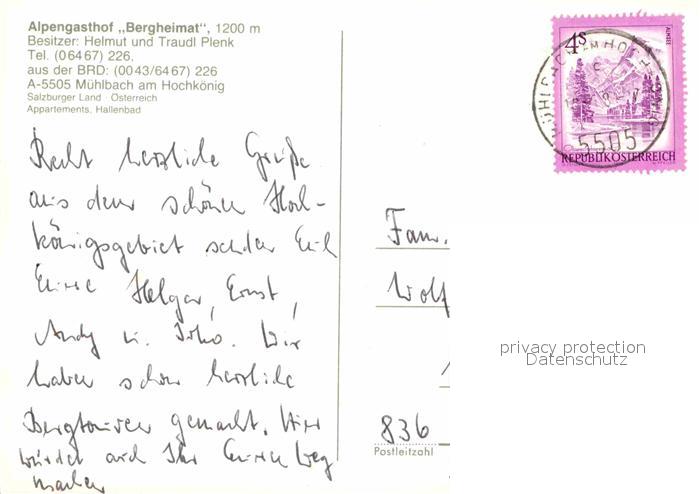 Alpengasthof „Bergheimat“, 1200 m
Besitzer: Helmut und Traudl Plenk
Tel. (06467) 226,
aus der BRD: (0043/6467) 226
A-5505 Mühlbach am Hochkönig
Salzburger Land · Österreich
Appartements, Hallenbad
Recht herzliche Grüße
aus dem schönen Hoch-
königsgebiet senden Euch
Eure Helgar, Ernst,
Andy u. Wir
haben schon herzliche
Bergtouren gemacht. Hier
würdet auch Ihr Euren Weg
machen
4S
ALMSEE
MÜHLBACH AM HOCHKÖNIG
5505
REPUBLIK ÖSTERREICH
Fam.
Wolf
836
Postleitzahl
privacy protection
Datenschutz